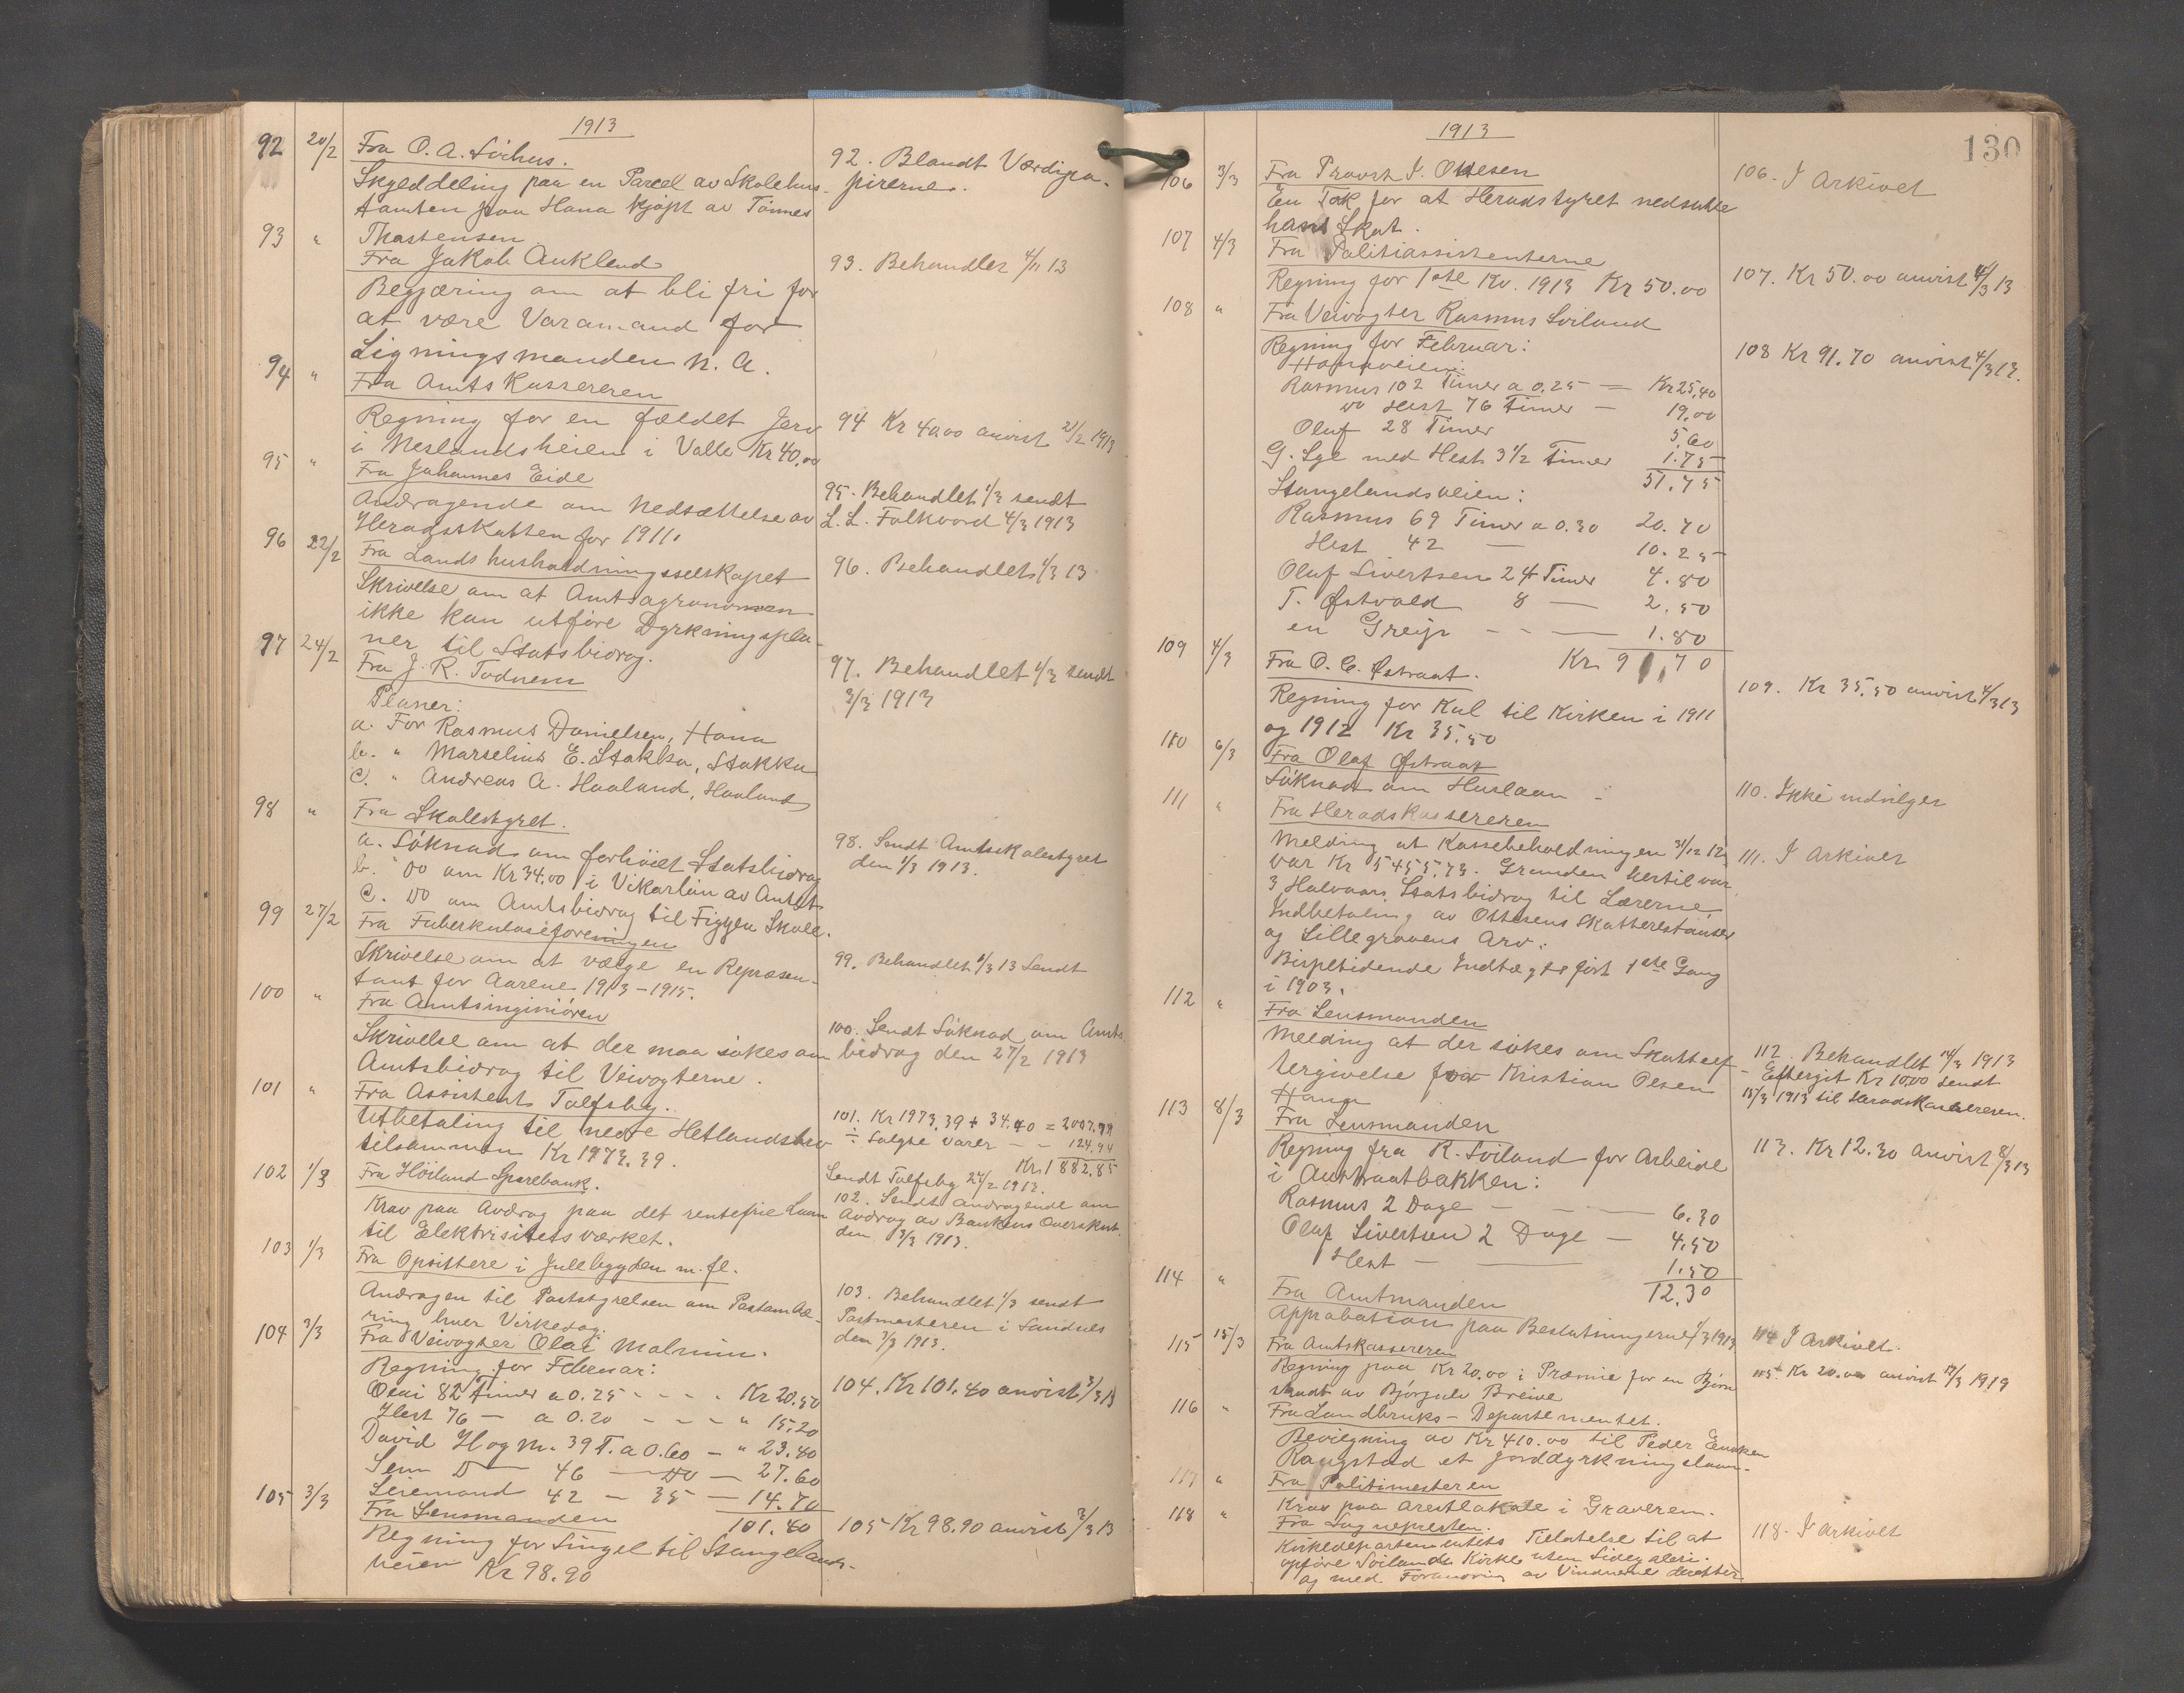 1913
92 20/2 Fra O. A. Sirhus. 92. Blandt Værdipa-
Skylddeling paa en Parcel av Skolehus- pirerne.
tomten paa Hana kjøpt av Tønnes
93 " Thostensen
Fra Jakob Aukland 93. Behandler 4/11 13
Begjæring om at bli fri for
at være Varamand for
Ligningsmanden N. A.
94 " Fra Amtskassereren
Regning for en fældet Jerv 94 Kr 40.00 anvist 21/2 1913
i Neslandsheien i Valle Kr 40.00
95 " Fra Johannes Eide
Andragende om Nedsættelse av 95. Behandlet 1/3 sendt
Heradsskatten for 1911. L. L. Folkvord 4/3 1913
96 22/2 Fra Landshusholdningsselskapet 96. Behandlet 1/3 13
Skrivelse om at Amtsagronomen
ikke kan utføre Dyrkningspla-
ner til Statsbidrag.
97 24/2 Fra J. R. Todnem 97. Behandlet 1/3 sendt
Planer: 3/3 1913
a. For Rasmus Danielsen, Hana
b. " Marselius E. Stokka, Stokka
c. " Andreas A. Haaland, Haaland
98 " Fra Skolestyret.
a. Søknad om forhøiet Statsbidrag 98. Sendt Amtsskolestyret
b. do om Kr 34.00 i Vikarløn av Amtet den 1/3 1913.
c. do om Amtsbidrag til Figgen Skole.
99 27/2 Fra Tuberkuloseforeningen
Skrivelse om at vælge en Repræsen- 99. Behandlet 1/3 13 Sendt
tant for Aarene 1913-1915.
100 " Fra Amtsinginiøren
Skrivelse om at der maa søkes om 100. Sendt Søknad om Amts
Amtsbidrag til Veivogterne. bidrag den 27/2 1913
101 " Fra Assistent Tolfsby.
Utbetaling til nedre Hetlandsbro 101. Kr 1973.39 + 34.40 = 2007.79
tilsammen Kr 1973.39. ÷ Solgte Varer - - 124.94
Kr 1882.85
Sendt Tolfsby 27/2 1913.
102 1/3 Fra Høiland Sparebank.
Krav paa Avdrag paa det rentefrie Laan 102. Sendt Andragende om
til Elektrisitetsværket. Avdrag av Bankens Overskud
den 3/3 1913.
103 1/3 Fra Opsittere i Julebygden m. fl.
Andragen til Poststyrelsen om Postombæ- 103. Behandlet 1/3 sendt
ring hver Virkedag. Postmesteren i Sandnes
104 3/3 Fra Veivogter Olai Malmin. den 3/3 1913.
Regning for Februar:
Olai 82 Timer a 0.25 - - - - Kr 20.50 104. Kr 101.40 anvist 3/3 13
Hest 76 — a 0.20 - - - " 15.20
David H og M. 39 T. a 0.60 - " 23.40
Senn D — 46 — do — 27.60
Leiemand 42 — 35 — 14.70
105 3/3 Fra Lensmanden 101.40 105 Kr 98.90 anvist 3/3 13
Regning for Singel til Stangelands-
veien Kr 98.90
1913
130
106 3/3 Fra Provst J. Ottesen 106. I Arkivet
En Tak for at Heradstyret nedsatte
hans Skat.
107 4/3 Fra Politiassistenterne
Regning for 1ste Kv. 1913 Kr 50.00 107. Kr 50.00 anvist 4/3 13
108 " Fra Veivogter Rasmus Sviland
Regning for Februar: 108 Kr 91.70 anvist 4/3 13.
Hanaveien:
Rasmus 102 Timer a 0.25 = Kr 25.40
do Hest 76 Timer — 19.00
Oluf 28 Timer 5.60
G. Lye med Hest 3 1/2 Timer 1.75
Stangelandsveien: 51.75
Rasmus 69 Timer a 0.30 20.70
Hest 42 — 10.25
Oluf Sivertsen 24 Timer 4.80
T. Østvold 8 — 2.50
en Greip - - — 1.80
109 4/3 Fra O. C. Østraat. Kr 91,70
Regning for Kul til Kirken i 1911 109. Kr 35.50 anvist 4/3 13
og 1912 Kr 35.50
110 6/3 Fra Olaf Østraat
Søknad om Huslaan 110. Ikke indvilges
111 " Fra Heradskassereren
Melding at Kassebeholdningen 31/12 12 111. I Arkivet
var Kr 5455.73. Grunden hertil var
3 Halvaars Statsbidrag til Lærerne,
Indbetaling av Ottesens Skatterestanser
og Lillegravens Arv.
Bispetidende Indtægtsført 1ste Gang
i 1903.
112 " Fra Lensmanden
Melding at der søkes om Skatteef- 112. Behandlet 14/3 1913
tergivelse for Kristian Olsen Eftergit Kr 10.00 sendt
Hana 15/3 1913 til Heradskassereren.
113 8/3 Fra Lensmanden
Regning fra R. Sviland for Arbeide 113. Kr 12.30 anvist 8/3 13
i Austraatbakken:
Rasmus 2 Dage — — — 6.30
Oluf Sivertsen 2 Dage — 4.50
Hest — — 1.50
114 " Fra Amtmanden 12.30
Approbation paa Beslutningerne 1/3 1913 114 I Arkivet.
115 15/3 Fra Amtskassereren
Regning paa Kr 20.00 i Præmie for en Bjørn 115 Kr 20.00 anvist 17/3 1919
skudt av Bjørgulv Breive
116 " Fra Landbruks-Departementet.
Bevilgning av Kr 410.00 til Peder
Raugstad et Jorddyrkningslaan.
117 " Fra Politimesteren
Krav paa Arestlokale i Graveren.
118 " Fra Sognepresten. 118. I Arkivet
Kirkedepartementets Tillatelse til at
opføre Svilands Kirke uten Sidegaleri.
og med Forandring av Vinduerne derefter